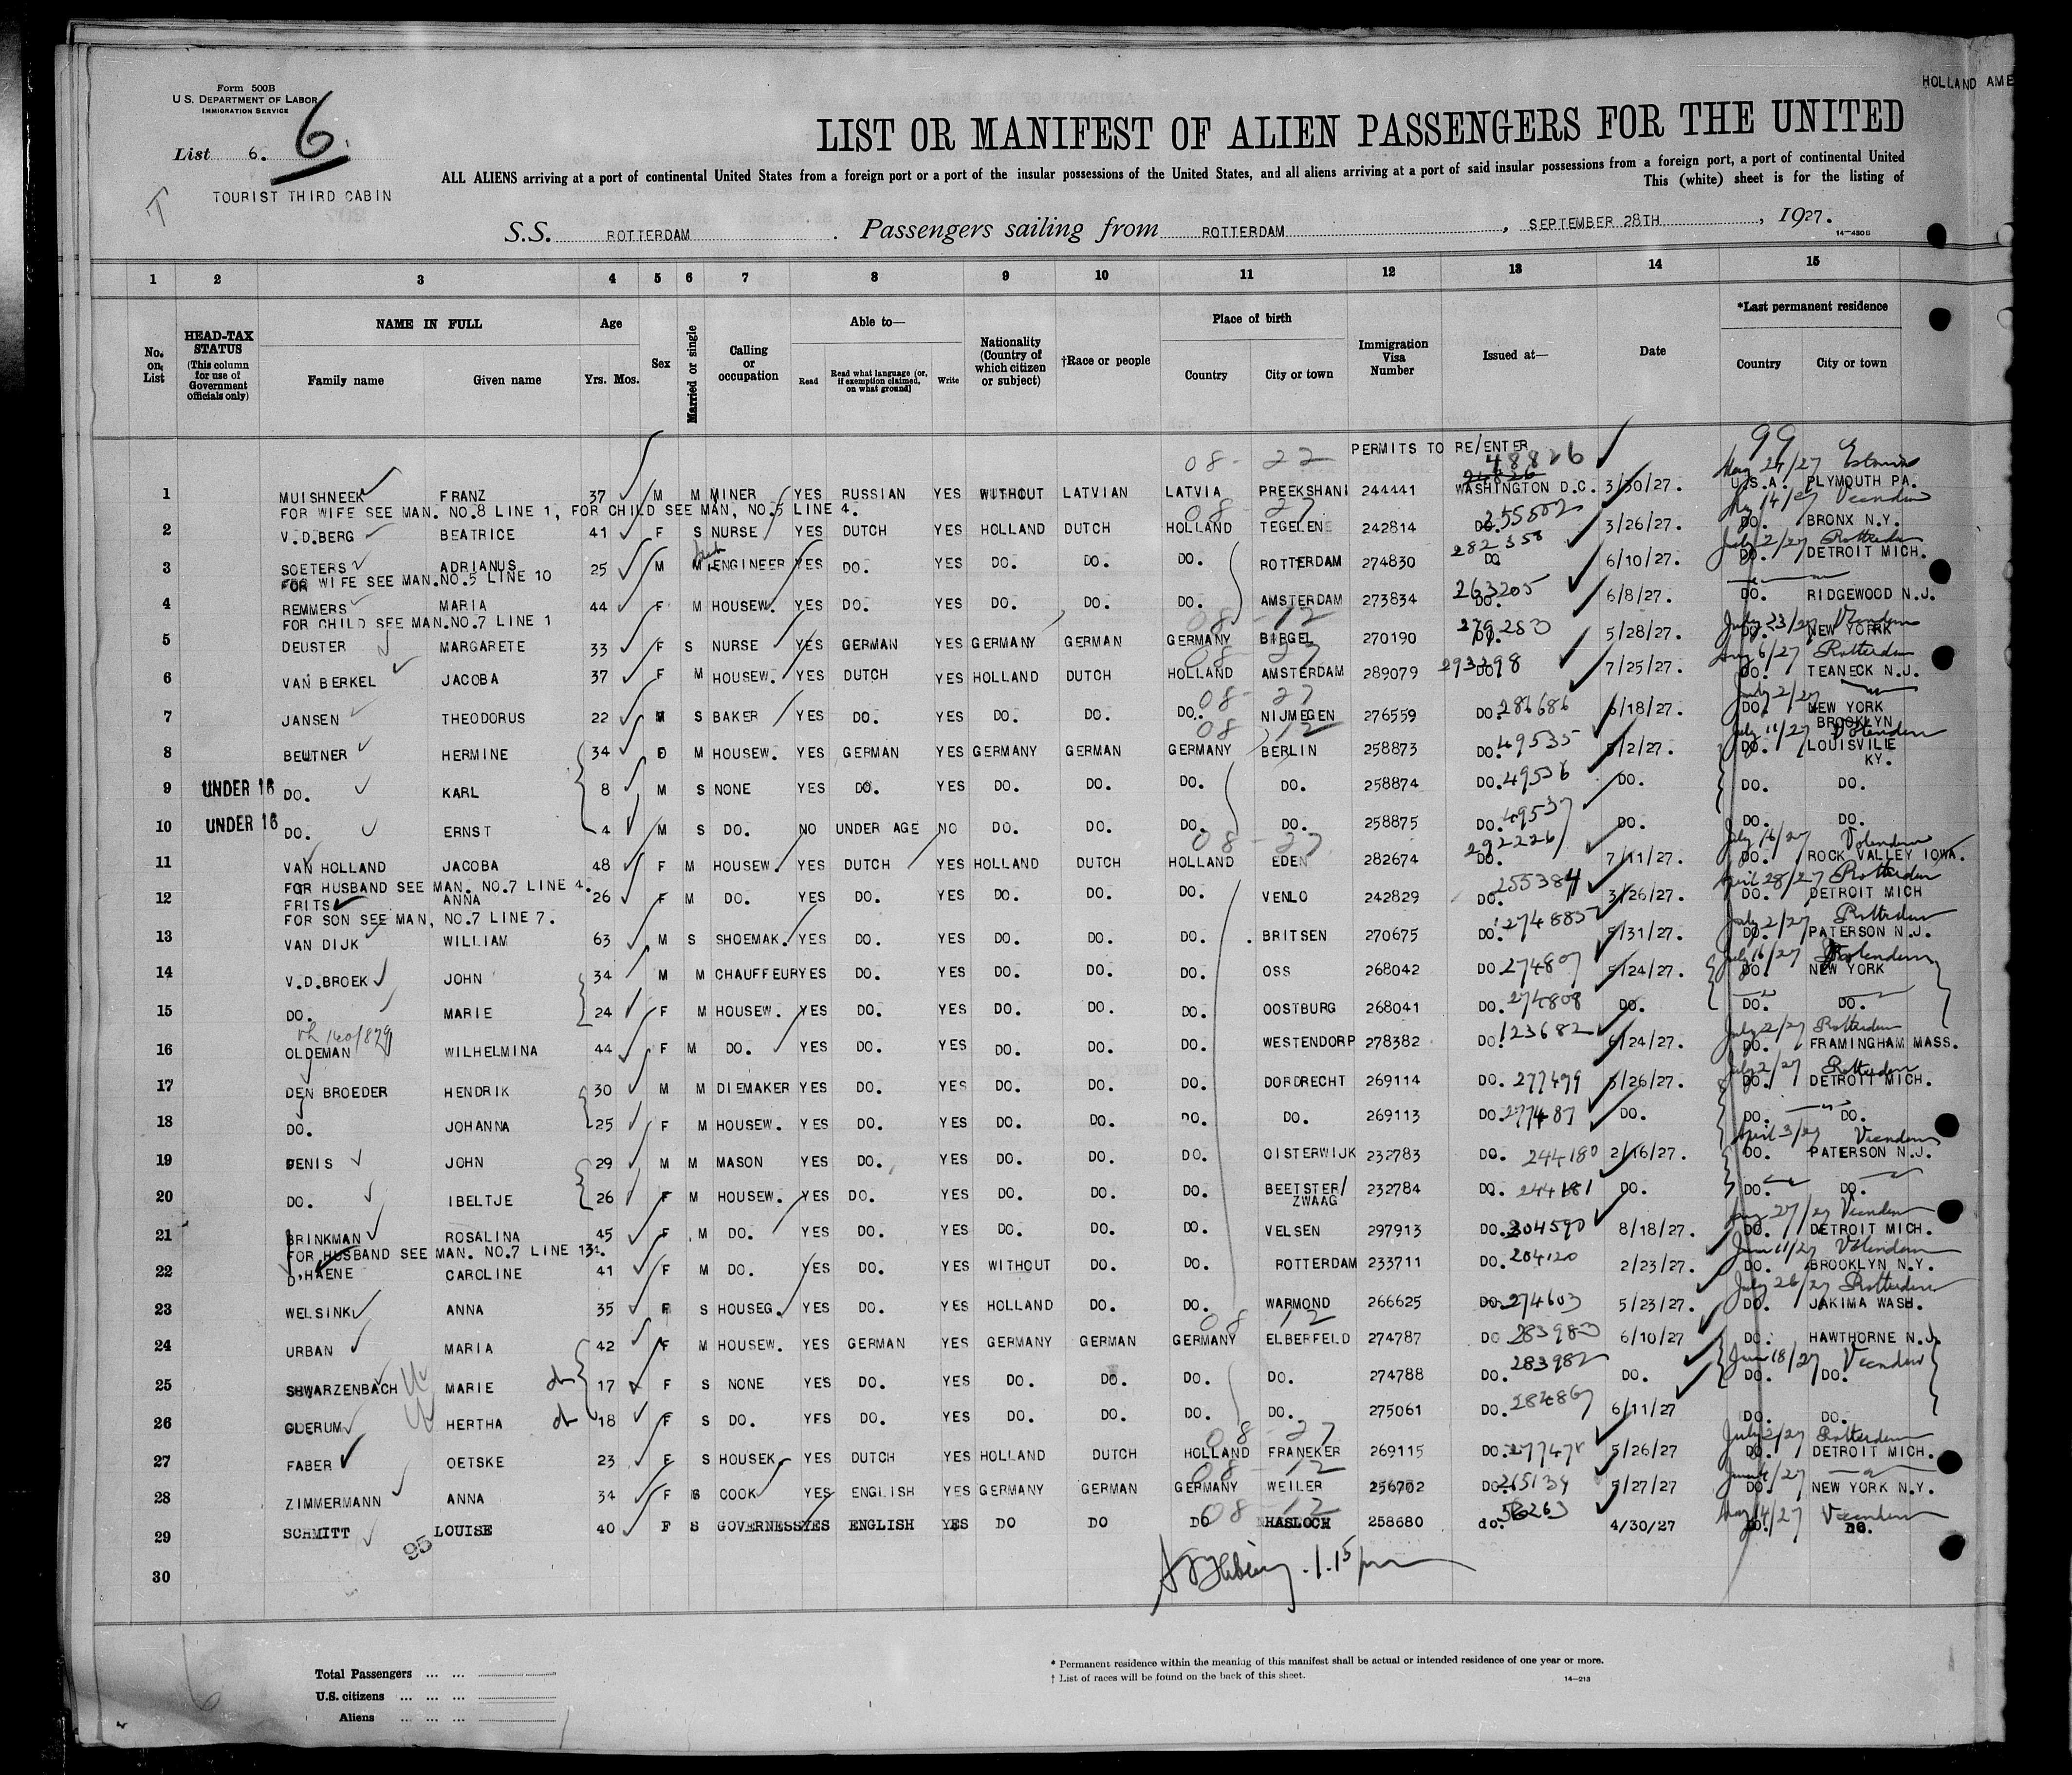 HOLLAND AME
Form 500B
U.S. DEPARTMENT OF LABOR
IMMIGRATION SERVICE
List 6. 6.
TOURIST THIRD CABIN
LIST OR MANIFEST OF ALIEN PASSENGERS FOR THE UNITED
ALL ALIENS arriving at a port of continental United States from a foreign port or a port of the insular possessions of the United States, and all aliens arriving at a port of said insular possessions from a foreign port, a port of continental United
This (white) sheet is for the listing of
S.S. ROTTERDAM. Passengers sailing from ROTTERDAM, SEPTEMBER 28TH, 1927.
14-430B
1 2 3 4 5 6 7 8 9 10 11 12 13 14 15
No. on List HEAD-TAX STATUS (This column for use of Government officials only) NAME IN FULL Family name Given name Age Yrs. Mos. Sex Married or single Calling or occupation Able to— Read Read what language (or, if exemption claimed, on what ground) Write Nationality (Country of which citizen or subject) †Race or people Place of birth Country City or town Immigration Visa Number Issued at— Date *Last permanent residence Country City or town
PERMITS TO RE/ENTER 99
08-22 48826
1 MUISHNEEK FRANZ 37 M M MINER YES RUSSIAN YES WITHOUT LATVIAN LATVIA PREEKSHANI 244441 WASHINGTON D.C. 3/30/27. U.S.A. PLYMOUTH PA.
FOR WIFE SEE MAN. NO.8 LINE 1, FOR CHILD SEE MAN, NO.5 LINE 4. 08-27
2 V.D.BERG BEATRICE 41 F S NURSE YES DUTCH YES HOLLAND DUTCH HOLLAND TEGELEN 242814 DO. 255502 3/26/27. DO. BRONX N.Y.
3 SOETERS ADRIANUS 25 M M ENGINEER YES DO. YES DO. DO. DO. ROTTERDAM 274830 DO 282358 6/10/27. DO. DETROIT MICH.
FOR WIFE SEE MAN.NO.5 LINE 10
4 REMMERS MARIA 44 F M HOUSEW. YES DO. YES DO. DO. DO. AMSTERDAM 273834 DO. 263205 6/8/27. DO. RIDGEWOOD N.J.
FOR CHILD SEE MAN.NO.7 LINE 1 08-12
5 DEUSTER MARGARETE 33 F S NURSE YES GERMAN YES GERMANY GERMAN GERMANY BIRGEL 270190 DO. 279283 5/28/27. DO. NEW YORK
08-27
6 VAN BERKEL JACOBA 37 F M HOUSEW. YES DUTCH YES HOLLAND DUTCH HOLLAND AMSTERDAM 289079 DO 293298 7/25/27. DO. TEANECK N.J.
08-27
7 JANSEN THEODORUS 22 M S BAKER YES DO. YES DO. DO. DO. NIJMEGEN 276559 DO. 286686 6/18/27. DO. NEW YORK BROOKLYN
08-12
8 BEUTNER HERMINE 34 M HOUSEW. YES GERMAN YES GERMANY GERMAN GERMANY BERLIN 258873 DO. 49535 5/2/27. DO. LOUISVILLE KY.
9 UNDER 16 DO. KARL 8 M S NONE YES DO. YES DO. DO. DO. DO. 258874 DO. 49536 DO. DO. DO.
10 UNDER 16 DO. ERNST 4 M S DO. NO UNDER AGE NO DO. DO. DO. DO. 258875 DO. 49537 DO. DO. DO.
08-27
11 VAN HOLLAND JACOBA 48 F M HOUSEW. YES DUTCH YES HOLLAND DUTCH HOLLAND EDEN 282674 DO. 292226 7/11/27. DO. ROCK VALLEY IOWA.
FOR HUSBAND SEE MAN. NO.7 LINE 4.
12 FRITS ANNA 26 F M DO. YES DO. YES DO. DO. DO. VENLO 242829 DO. 255384 3/26/27. DO. DETROIT MICH
FOR SON SEE MAN, NO.7 LINE 7.
13 VAN DIJK WILLIAM 63 M S SHOEMAK. YES DO. YES DO. DO. DO. BRITSEN 270675 DO. 274885 5/31/27. DO. PATERSON N.J.
14 V.D.BROEK JOHN 34 M M CHAUFFEUR YES DO. YES DO. DO. DO. OSS 268042 DO 274807 5/24/27. DO. NEW YORK
15 DO. MARIE 24 F M HOUSEW. YES DO. YES DO. DO. DO. OOSTBURG 268041 DO. 274808 DO. DO. DO.
16 OLDEMAN WILHELMINA 44 F M DO. YES DO. YES DO. DO. DO. WESTENDORP 278382 DO. 123682 6/24/27. DO. FRAMINGHAM MASS.
17 DEN BROEDER HENDRIK 30 M M DIEMAKER YES DO. YES DO. DO. DO. DORDRECHT 269114 DO. 277499 5/26/27. DO. DETROIT MICH.
18 DO. JOHANNA 25 F M HOUSEW. YES DO. YES DO. DO. DO. DO. 269113 DO. 277487 DO. DO. DO.
19 DENIS JOHN 29 M M MASON YES DO. YES DO. DO. DO. OISTERWIJK 232783 DO. 244180 2/16/27. DO. PATERSON N.J.
20 DO. IBELTJE 26 F M HOUSEW. YES DO. YES DO. DO. DO. BEETSTER/ ZWAAG 232784 DO. 244181 DO. DO. DO.
21 BRINKMAN ROSALINA 45 F M DO. YES DO. YES DO. DO. DO. VELSEN 297913 DO. 304590 8/18/27. DO. DETROIT MICH.
FOR HUSBAND SEE MAN. NO.7 LINE 13.
22 D'HAENE CAROLINE 41 F M DO. YES DO. YES WITHOUT DO. DO. ROTTERDAM 233711 DO. 204120 2/23/27. DO. BROOKLYN N.Y.
23 WELSINK ANNA 35 F S HOUSEG. YES DO. YES HOLLAND DO. DO. WARMOND 266625 DO. 274603 5/23/27. DO. JAKIMA WASH.
08 12
24 URBAN MARIA 42 F M HOUSEW. YES GERMAN YES GERMANY GERMAN GERMANY ELBERFELD 274787 DO 283983 6/10/27 DO. HAWTHORNE N.J.
25 SHWARZENBACH MARIE 17 F S NONE YES DO. YES DO. DO. DO. DO. 274788 DO. 283982 DO. DO. DO.
26 GLERUM HERTHA 18 F S DO. YES DO. YES DO. DO. DO. DO. 275061 DO. 28486 6/11/27 DO. DO.
08-27
27 FABER OETSKE 23 F S HOUSEK. YES DUTCH YES HOLLAND DUTCH HOLLAND FRANEKER 269115 DO. 5/26/27 DO. DETROIT MICH.
08-12
28 ZIMMERMANN ANNA 34 F S COOK YES ENGLISH YES GERMANY GERMAN GERMANY WEILER 256702 DO 265134 5/27/27 DO. NEW YORK N.Y.
08-12
29 SCHMITT LOUISE 40 F S GOVERNESS YES ENGLISH YES DO DO DO HASLOCH 258680 do. 56263 4/30/27 DO. DO.
95
30
1.15 pm
Total Passengers ... ...
U.S. citizens ... ... ...
Aliens ... ... ...
* Permanent residence within the meaning of this manifest shall be actual or intended residence of one year or more.
† List of races will be found on the back of this sheet.
14-213